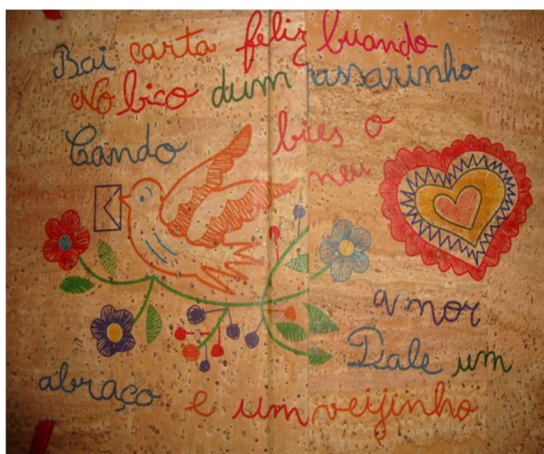 Bai carta feliz buando
No bico dum passarinho
Cando bires o
meu
amor
Dale um
abraço e um veijinho